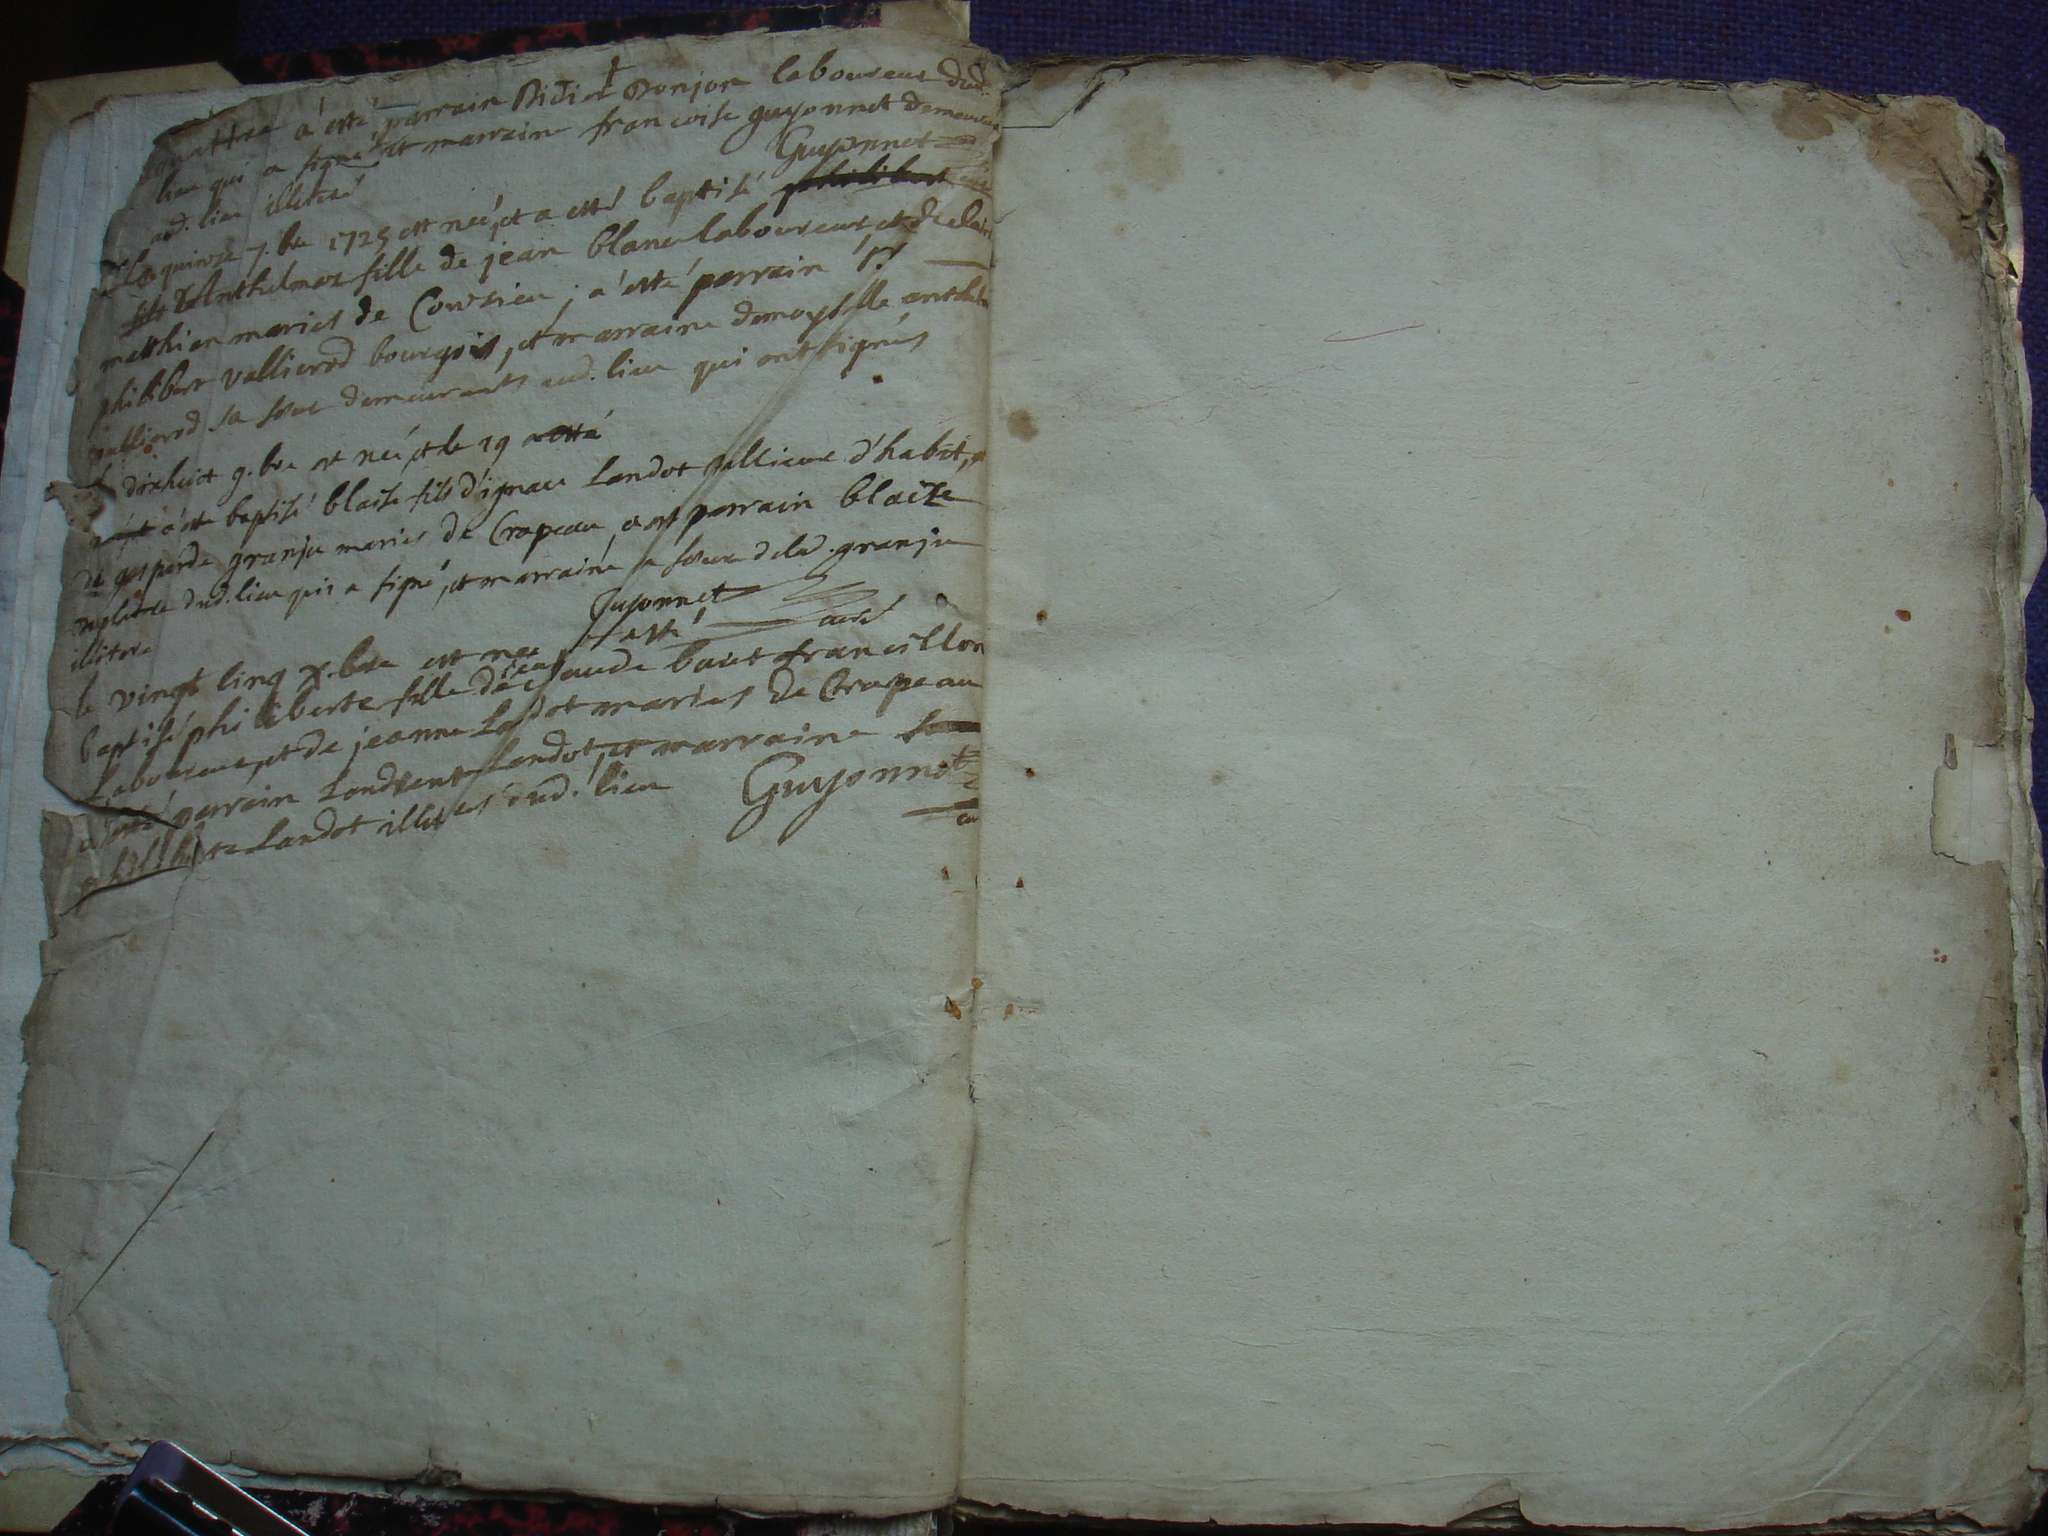 quattre a esté parrain Didier Donjon laboureur dud.
lieu qui a signé et marraine francoise guyonnet demeurant
aud. lieu illiteré Guyonnet
Le quinze 7.bre 1725 est neé, et a esté baptisé philibert
Anthelmoz fille de jean blanc laboureur et de
matthieu mariés de Courzieu, a esté parrain Sr
philibert vallierod bourgois, et marraine demoyselle
vallierod sa soeur demeurants aud. lieu qui ont signés
dixhuit 9.bre est né, et le 19 a esté
a esté baptisé blaise fils d'ignace Landot tallieur d'habit, et
de gasparde granju mariés de Crapeau, a esté parrain blaise
dud. lieu qui a signé, et marraine sa soeur de lad. granju
illitere Guyonnet curé
le vingt cinq X.bre est nee et a esté
baptisé philiberte fille de claude francillon
Laboureur, et de jeanne Landot mariés de Crapeau
a esté parrain Landot, et marraine
philiberte Landot illiterés dud. lieu Guyonnet
cu